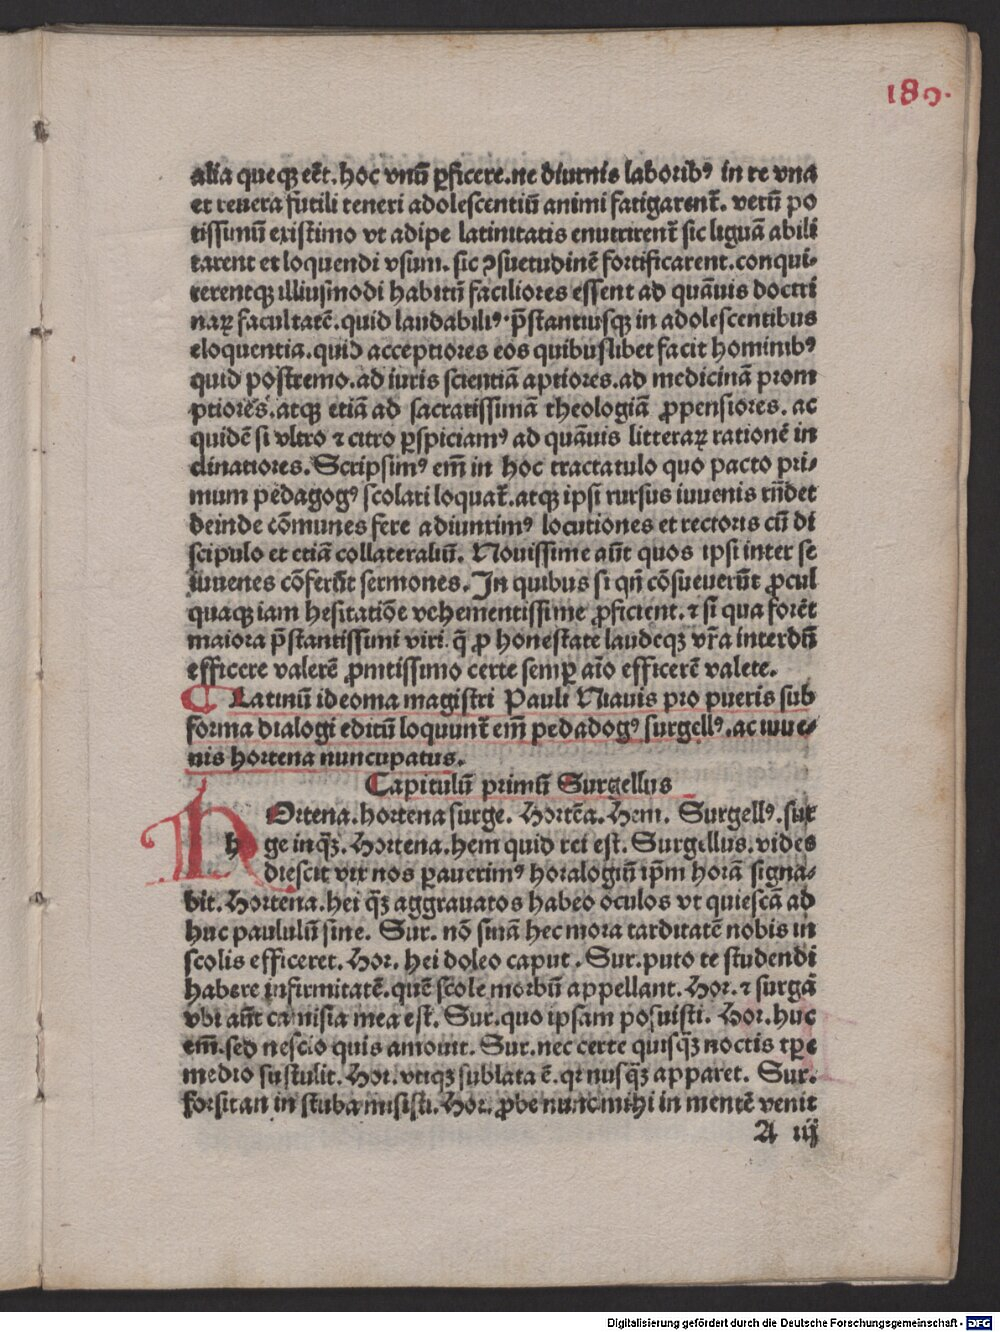 189.
alia queqꝫ eēt. hoc vnū ꝑficere. ne diurnis laboribꝰ in re vna
et reuera futili teneri adolescentiū animi fatigarent᷑. verū po
tissimū existimo vt adipe latinitatis enutrirent᷑ sic liguā abili
tarent et loquendi vsum. sic ꝯsuetudinē fortificarent. conqui⸗
rerentqꝫ illiusmodi habitū faciliores essent ad quāuis doctri
naꝝ facultatē. quid laudabiliꝰ p̄stantiusqꝫ in adolescentibus
eloquentia. quid acceptiores eos quibuslibet facit hominibꝰ
quid postremo. ad iuris scientiā aptiores. ad medicinā prom
ptiores. atqꝫ etiā ad sacratissimā theologiā ꝓpensiores. ac
quidē si vltro ⁊ citro ꝑspiciamꝰ ad quāuis litteraꝝ rationē in
clinatiores. Scripsimꝰ em̄ in hoc tractatulo quo pacto pri⸗
mum pedagogꝰ scolari loquat᷑. atqꝫ ipsi rursus iuuenis rn̄det
deinde cōmunes fere adiunximꝰ locutiones et rectoris cū di
scipulo et etiā collateraliū. Nouissime aūt quos ipsi inter se
iuuenes cōferūt sermones. In quibus si qn̄ cōsueuerūt ꝓcul
quaqꝫ iam hesitatiōe vehementissime ꝓficient. ⁊ si qua forēt
maiora p̄stantissimi viri. q̄ ꝓ honestate laudeqꝫ vr̄a interdū
efficere valerē ꝓmtissimo certe semꝑ aīo efficerē valete.
Latinū ideoma magistri Pauli Niauis pro pueris sub
forma dialogi editū loquunt᷑ em̄ pedadogꝰ surgellꝰ. ac iuue⸗
nis hortena nuncupatus.
Capitulū primū Surgellus
h Ortena. hortena surge. Hortēa. Hem. Surgellꝰ. sur
ge inqꝫ̄. Hortena. hem quid rei est. Surgellus. vides
diescit vix nos ꝑauerimꝰ horalogiū ip̄m horā signa⸗
bit. Hortena. hei qꝫ̄ aggrauatos habeo oculos vt quiescā ad
huc paululū sine. Sur. nō sinā hec mora tarditatē nobis in
scolis efficeret. Hor. hei doleo caput. Sur. puto te studendi
habere infirmitatē. quē scole morbū appellant. Hor. ⁊ surgā
vbi aūt camisia mea est. Sur. quo ipsam posuisti. Hor. huc
em̄. sed nescio quis amouit. Sur. nec certe quisqꝫ̄ noctis tꝑe
medio sustulit. Hor. vtiqꝫ sublata ē. qr nusqꝫ̄ apparet. Sur.
forsitan in stuba misisti. Hor. ꝓbe nunc mihi in mentē venit
A iij
Digitalisierung gefördert durch die Deutsche Forschungsgemeinschaft - DFG